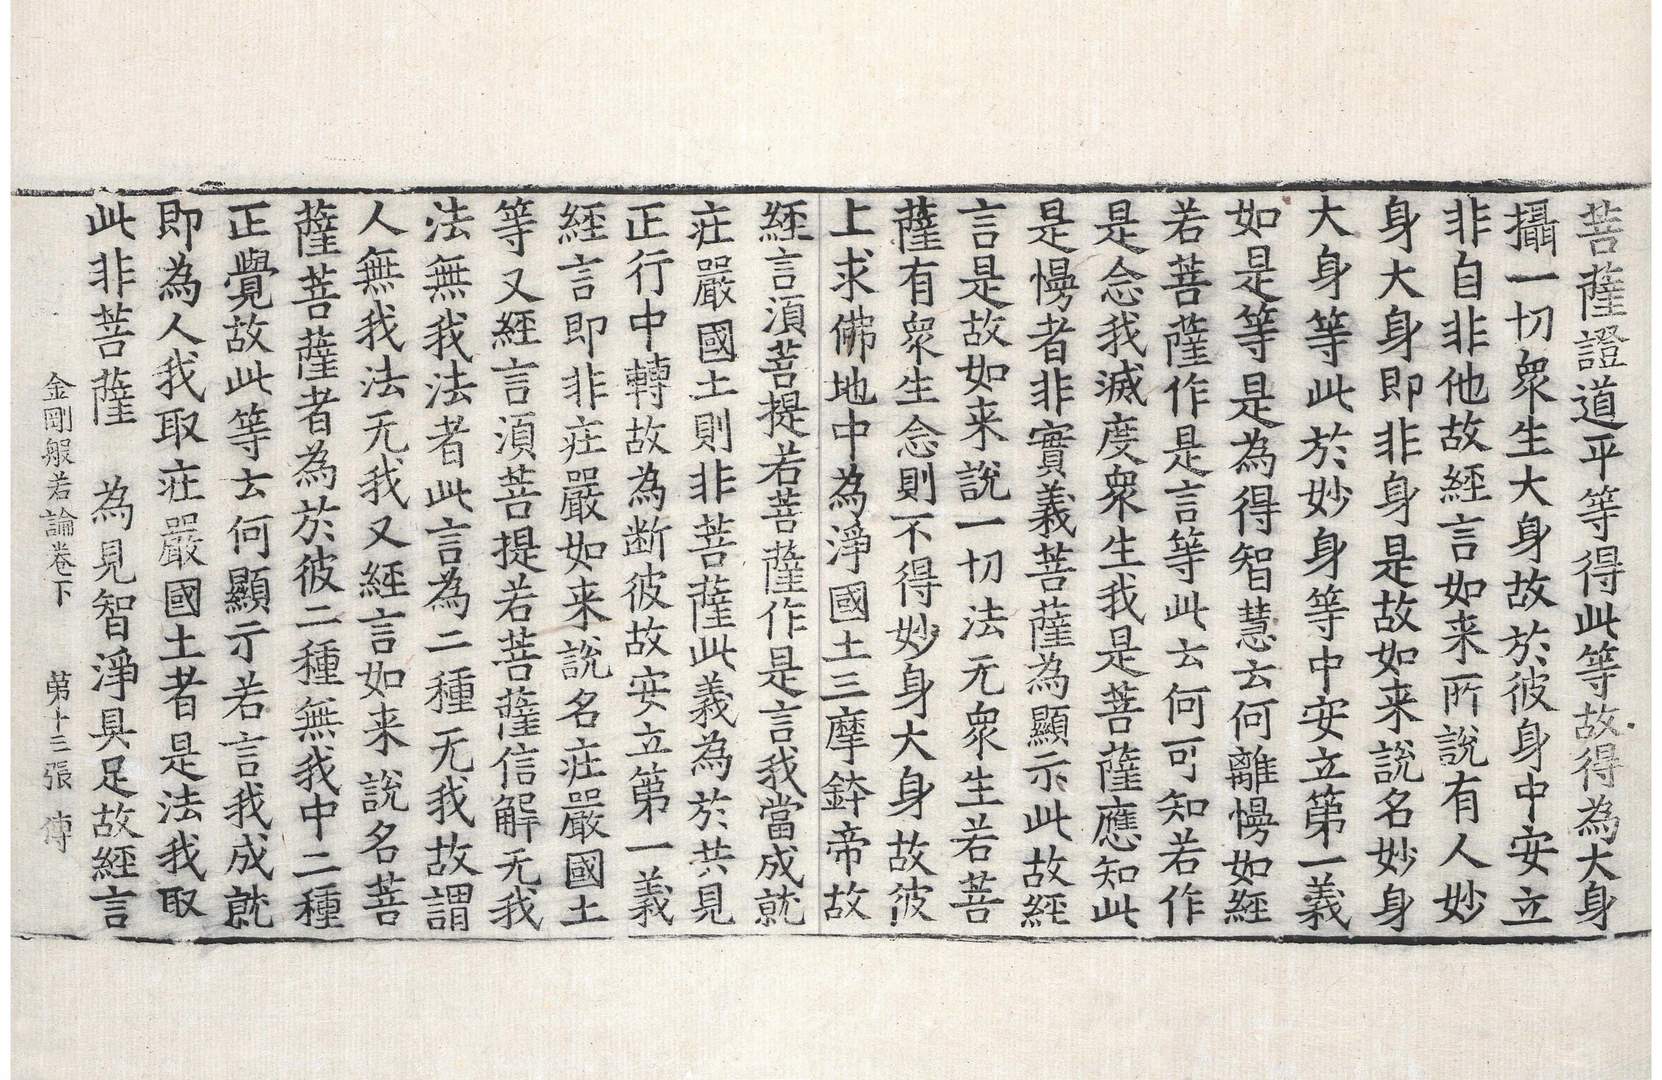 菩薩證道平等得此等故得為大身
攝一切衆生大身故於彼身中安立
非自非他故經言如来所說有人妙
身大身即非身是故如来說名妙身
大身等此於妙身等中安立第一義
如是等是為得智慧云何離慢如經
若菩薩作是言等此云何可知若作
是念我滅度衆生我是菩薩應知此
是慢者非實義菩薩為顯示此故經
言是故如来說一切法无衆生若菩
薩有衆生念則不得妙身大身故彼
上求佛地中為淨國土三摩鉢帝故
經言湏菩提若菩薩作是言我當成就
莊嚴國土則非菩薩此義為於共見
正行中轉故為断彼故安立第一義
經言即非莊嚴如来說名莊嚴國土
等又經言湏菩提若菩薩信解无我
法無我法者此言為二種无我故謂
人無我法无我又經言如来說名菩
薩菩薩者為於彼二種無我中二種
正覺故此等云何顯示若言我成就
即為人我取莊嚴國土者是法我取
此非菩薩　為見智淨具足故經言
金剛般若論卷下　第十三張　傅